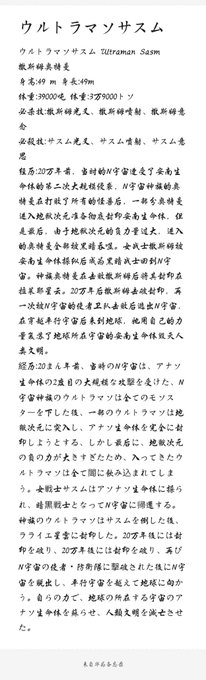 ウルトラマンサスム
ウルトラマンサスム Ultraman Sasm
撒斯姆奥特曼
身高:49 m 身長:49m
体重:39000吨 体重:3万9000トン
必杀技:撒斯姆光叉、撒斯姆喷射、撒斯姆意
念
必殺技:サスム光叉、サスム噴射、サスム意
思
经历:20万年前，当时的N宇宙遭受了安南生
命体的第二次大规模侵袭，N宇宙神族的奥
特曼在打败了所有的怪兽后，一部分奥特曼
进入地狱次元准备彻底封印安南生命体，但
是最后，由于地狱次元的负力量过大，进入
的奥特曼全部被黑暗吞噬。女战士撒斯姆被
安南生命体操纵后成为黑暗战士回到N宇
宙。神族奥特曼在击败撒斯姆后将其封印在
拉莱耶星云。20万年后撒斯姆击破封印，再
一次被N宇宙的使者卫队击败后逃出N宇宙，
在穿越平行宇宙后来到地球，祂用自己的力
量复苏了地球所在宇宙的安南生命体毁灭人
类文明。
経歴:20まん年前、当時のN宇宙は、アナソ
生命体の2度目の大規模な攻撃を受けた、N
宇宙神族のウルトラマンは全てのモンス
ターを下した後、一部のウルトラマンは地
獄次元に突入し、アナソ生命体を完全に封
印しようとする、しかし最后に、地獄次元
の負の力が大きすぎたため、入ってきたウ
ルトラマンは全て闇に飲み込まれてしま
う。女戦士サスムはアソナソ生命体に操ら
れ、暗黒戦士となってN宇宙に帰還する。
神族のウルトラマンはサスムを倒した後、
ラライエ星雲に封印した。20万年後には封
印を破り、20万年後には封印を破り、再び
N宇宙の使者・防衛隊に撃破された後にN宇
宙を脱出し、平行宇宙を超えて地球に向か
う。自らの力で、地球の所在する宇宙のア
ナソ生命体を蘇らせ、人類文明を滅亡させ
た。